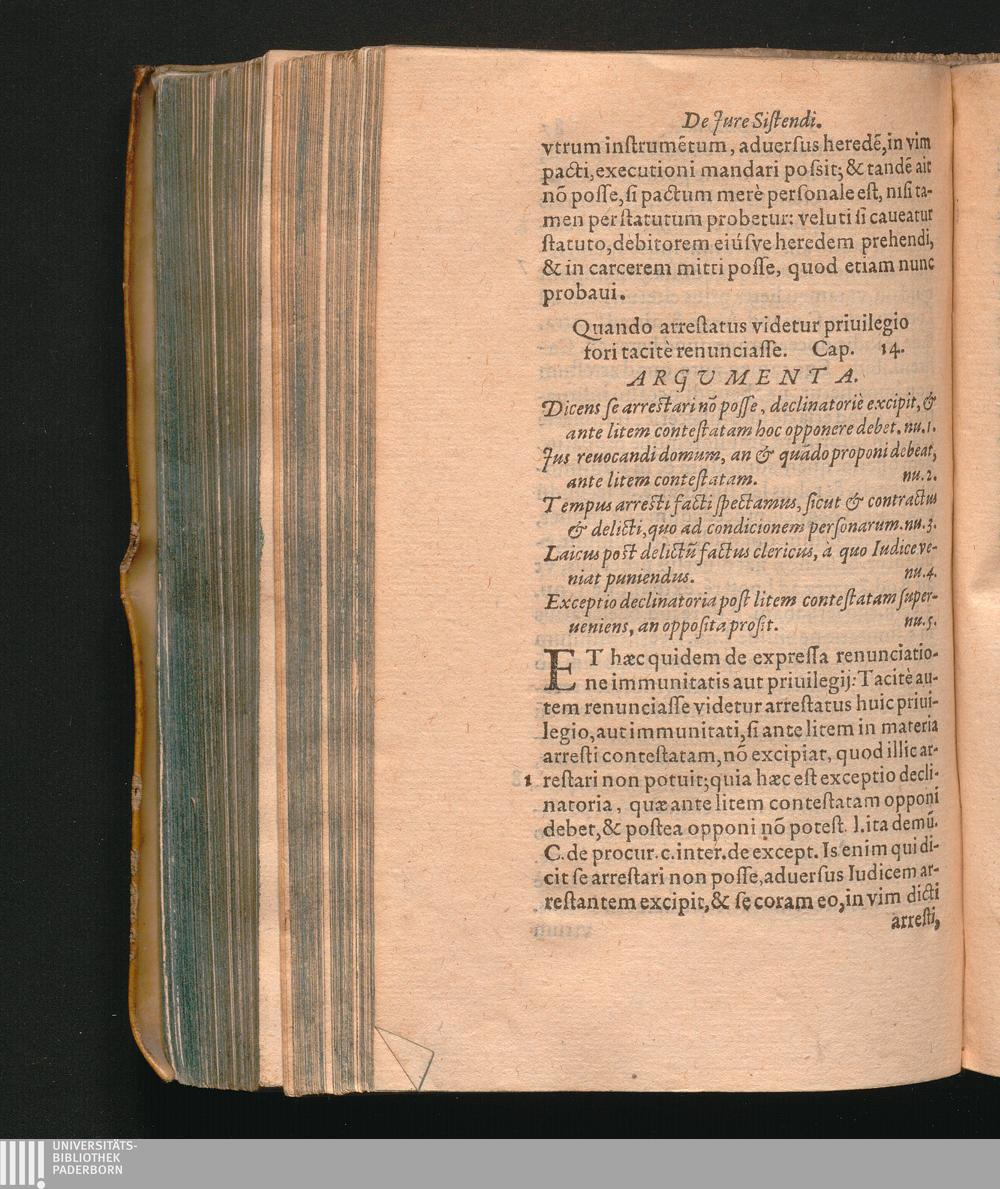 De Jure Siſtendi.
vtrum inſtrumẽtum, aduerſus heredẽ, in vim
pacti, executioni mandari poſsit; & tandẽ ait
nõ poſſe, ſi pactum merè perſonale eſt, niſi ta-
men per ſtatutum probetur: veluti ſi caueatur
ſtatuto, debitorem eiúſve heredem prehendi,
& in carcerem mitti poſſe, quod etiam nunc
probaui.
Quando arreſtatus videtur priuilegio
fori tacitè renunciaſſe. Cap. 14.
ARGVMENTA.
Dicens ſe arreſtari nõ poſſe, declinatoriè excipit, &
ante litem conteſtatam hoc opponere debet. nu.1.
Jus reuocandi domum, an & quãdo proponi debeat,
ante litem conteſtatam. nu.2.
Tempus arreſti facti ſpectamus, ſicut & contractus
& delicti, quo ad condicionem perſonarum. nu.3.
Laicus poſt delictũ factus clericus, à quo Iudice ve-
niat puniendus. nu.4.
Exceptio declinatoria poſt litem conteſtatam ſuper-
ueniens, an oppoſita proſit. nu.5.
ET hæc quidem de expreſſa renunciatio-
ne immunitatis aut priuilegij: Tacitè au-
tem renunciaſſe videtur arreſtatus huic priui-
legio, aut immunitati, ſi ante litem in materia
arreſti conteſtatam, nõ excipiat, quod illic ar-
1 reſtari non potuit; quia hæc eſt exceptio decli-
natoria, quæ ante litem conteſtatam opponi
debet, & poſtea opponi nõ poteſt. l. ita demũ.
C. de procur. c. inter. de except. Is enim qui di-
cit ſe arreſtari non poſſe, aduerſus Iudicem ar-
reſtantem excipit, & ſe coram eo, in vim dicti
arreſti,
UNIVERSITÄTS-
BIBLIOTHEK
PADERBORN